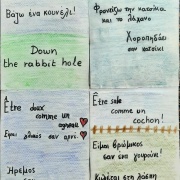 Βάζω ένα κουνέλι!
Down
the rabbit hole
Φροντίζω την κατσίκα
και το λάχανο
Χοροπηδάει
σαν κατσίκι
Être doux
comme un
agneau
Είμαι ήσυχος σαν αρνί.
Être sale
comme un
cochon!
Είμαι βρώμικος
σαν ένα γουρούνι!
Ήρεμος
Κυλιέται στη λάσπη